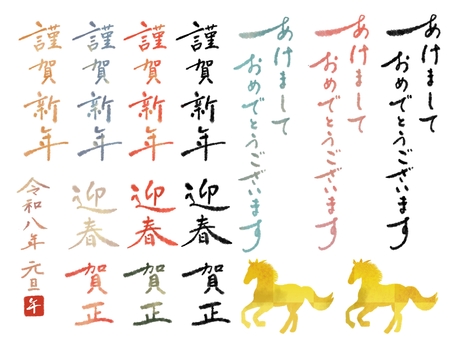 あけまして
おめでとうございます
あけまして
おめでとうございます
あけまして
おめでとうございます
謹賀新年
謹賀新年
謹賀新年
謹賀新年
迎春
迎春
迎春
賀正
賀正
賀正
令和八年 元旦
午